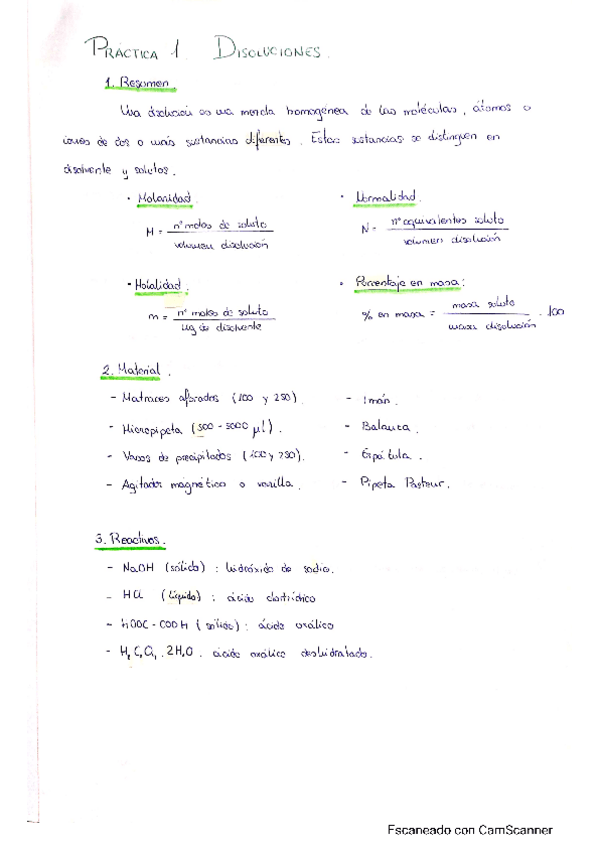 PRÁCTICA 1. DISOLUCIONES.
1. Resumen.
Una disolución es una mezcla homogénea de las moléculas, átomos o
iones de dos o más sustancias diferentes. Estas sustancias se distinguen en
disolvente y solutos.
· Molaridad.
M = nº moles de soluto / volumen disolución
· Normalidad.
N = nº equivalentes soluto / volumen disolución
· Molalidad.
m = nº moles de soluto / kg de disolvente
· Porcentaje en masa:
% en masa = masa soluto / masa disolución · 100
2. Material.
- Matraces aforados (100 y 250).
- Micropipeta (500 - 5000 μl).
- Vasos de precipitados (100 y 250).
- Agitador magnético o varilla.
- Imán.
- Balanza.
- Espátula.
- Pipeta Pasteur.
3. Reactivos.
- NaOH (sólido): hidróxido de sodio.
- HCl (líquido): ácido clorhídrico
- HOOC - COOH (sólido): ácido oxálico
- H₂C₂O₄ . 2H₂O. ácido oxálico deshidratado.
Escaneado con CamScanner